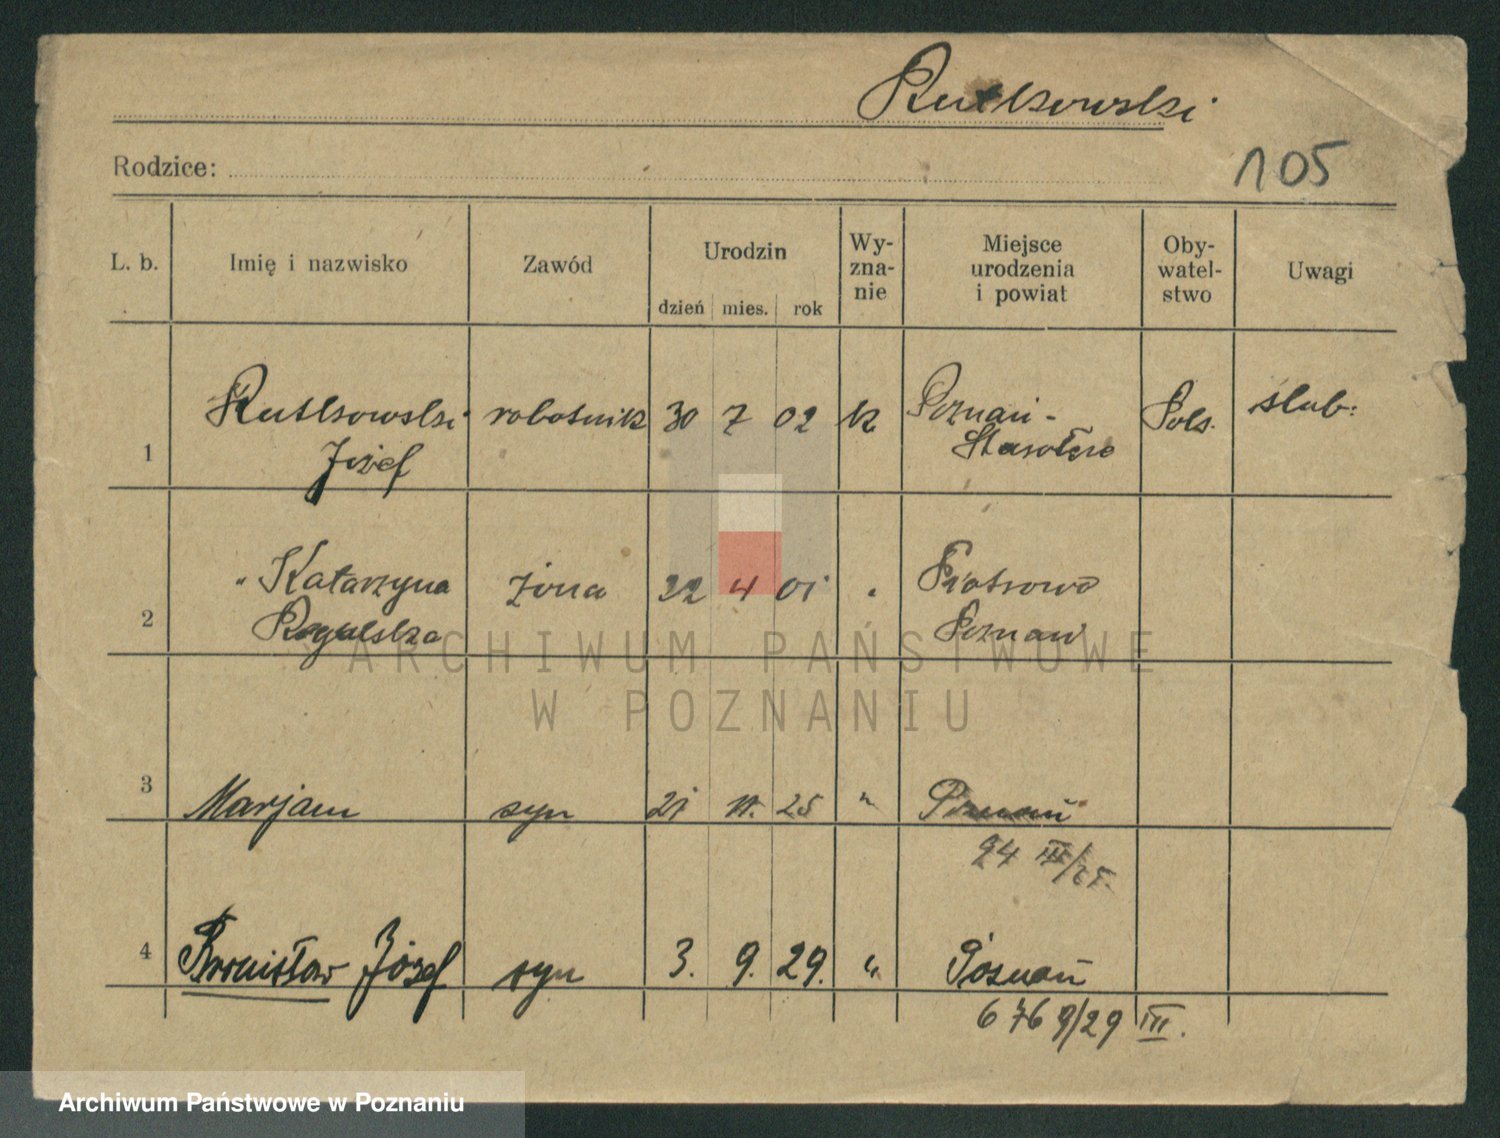 Rutkowski
Rodzice:
105
L. b. Imię i nazwisko Zawód Urodzin Wy-zna-nie Miejsce urodzenia i powiat Oby-watel-stwo Uwagi
dzień mies. rok
Rutkowski robotnik 30 7 02 k Poznań - Pols. ślub:
1 Józef Starołęce
" Katarzyna żona 22 4 01 " Piotrowo
2 Rogalska Poznań
ARCHIWUM PAŃSTWOWE
W POZNANIU
3 Marjan syn 21 25 " Poznań
24 III/25.
4 Bronisław Józef syn 3. 9. 29. " Poznań
676 9/29 III.
Archiwum Państwowe w Poznaniu